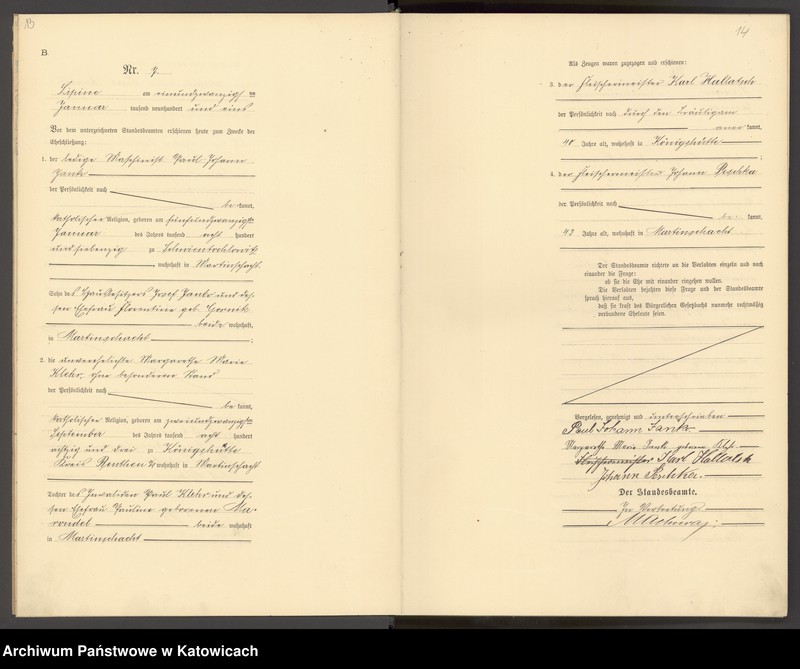 13
B.
Nr. 7.
Lipine am einundzwanzigsten
Januar tausend neunhundert und eins
Vor dem unterzeichneten Standesbeamten erschienen heute zum Zwecke der
Eheschließung:
1. der ledige Maschinist Paul Johann
der Persönlichkeit nach
be kannt,
katholischer Religion, geboren am fünfundzwanzigsten
Januar des Jahres tausend acht hundert
undsiebenzig zu Schwientochlowitz
wohnhaft in Martinschacht.
Sohn des Hausbesitzers Josef und des-
sen Ehefrau Florentine geb. Gornik
beide wohnhaft,
in Martinschacht ;
2. die unverehelichte Margarethe Marie
Klehr, ohne besonderen Stand
der Persönlichkeit nach
be kannt,
katholischer Religion, geboren am zweiundzwanzigsten
September des Jahres tausend acht hundert
achtzig und drei zu Königshütte
Kreis Beuthen wohnhaft in Martinschacht
Tochter des Invaliden Paul Klehr und des-
sen Ehefrau Pauline geborenen
beide wohnhaft
in Martinschacht
14
Als Zeugen waren zugezogen und erschienen:
3. der Fleischermeister Karl Hallatsch
der Persönlichkeit nach durch den Bräutigam
aner kannt,
40 Jahre alt, wohnhaft in Königshütte ;
4. der Fleischermeister Johann Peschka
der Persönlichkeit nach
be kannt,
43 Jahre alt, wohnhaft in Martinschacht
Der Standesbeamte richtete an die Verlobten einzeln und nach
einander die Frage:
ob sie die Ehe mit einander eingehen wollen.
Die Verlobten bejahten diese Frage und der Standesbeamte
sprach hierauf aus,
daß sie kraft des Bürgerlichen Gesetzbuchs nunmehr rechtmäßig
verbundene Eheleute seien.
Vorgelesen, genehmigt und unterschrieben
Paul Johann
Margarethe Marie geborene Klehr
Fleischermeister Karl Hallatsch
Johann Peschka.
Der Standesbeamte.
In Vertretung
Archiwum Państwowe w Katowicach